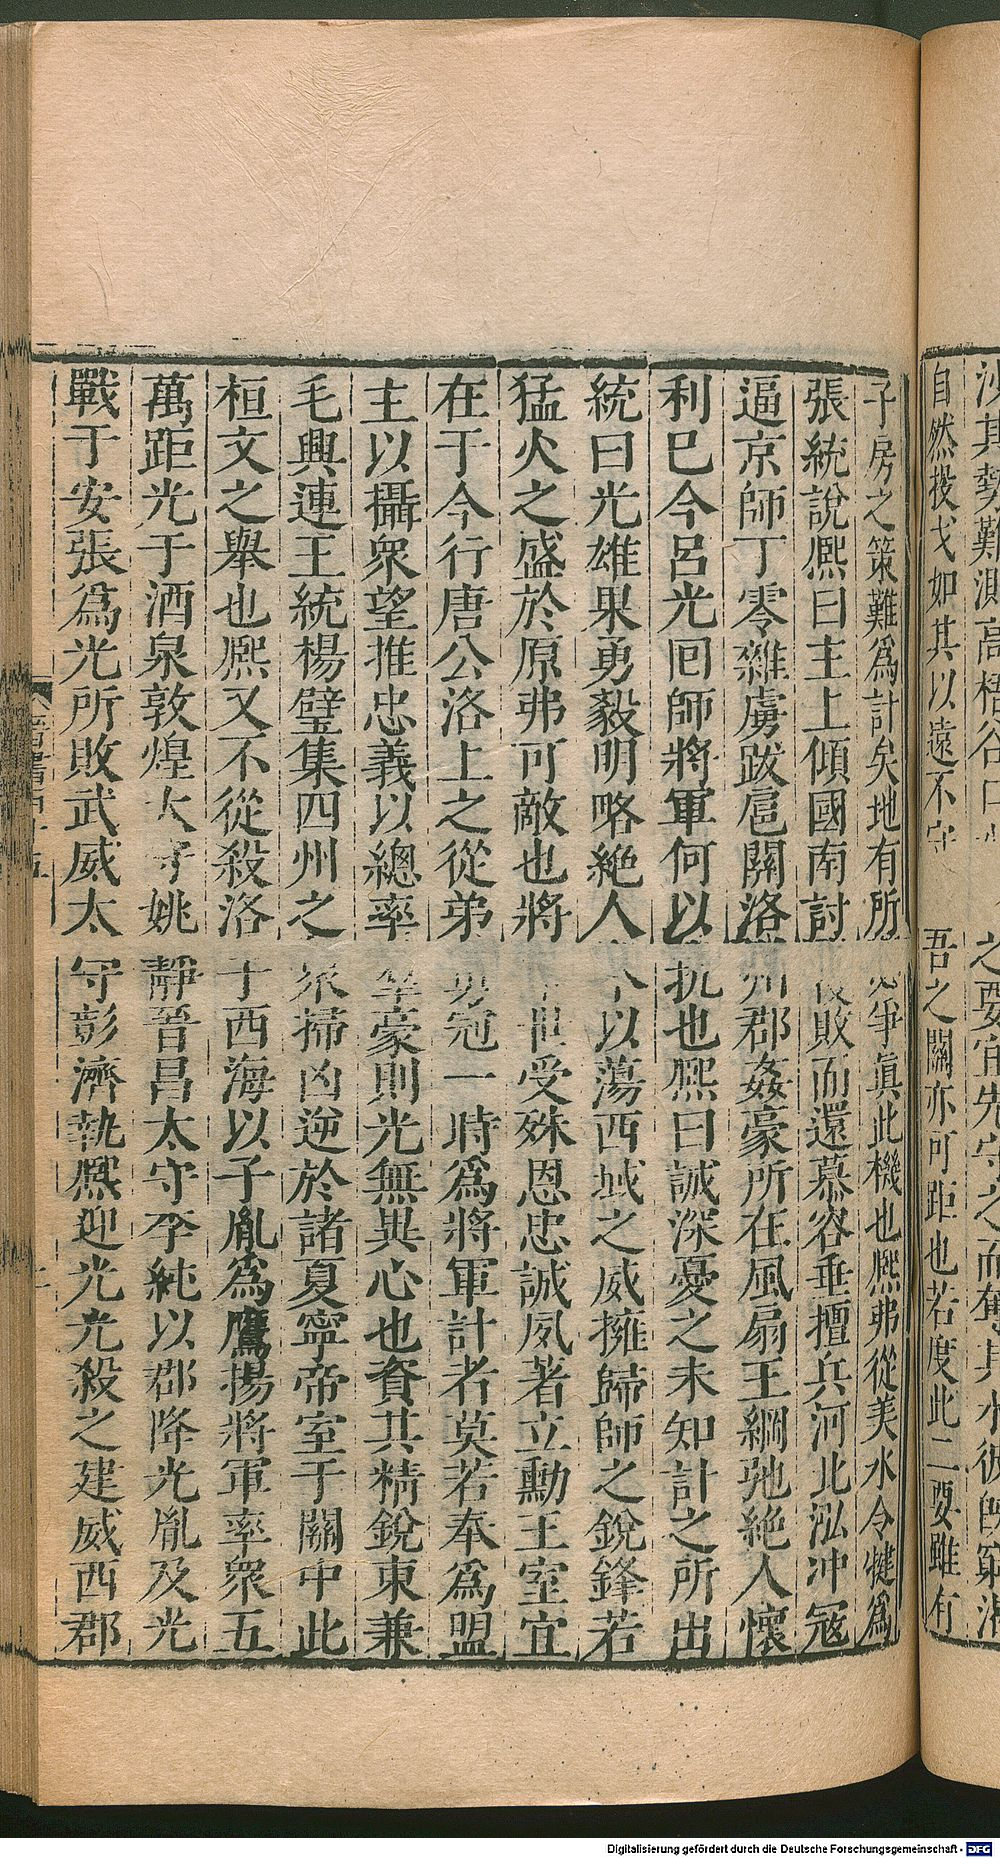 沙其勢難測高梧谷口之要宜先守之而奪其水彼既窮渴
自然投戈如其以遠不守吾之關亦可距也若度此二要雖有
子房之策難爲計矣地有所必爭眞此機也熈弗從美水令犍爲
張統說熈曰主上傾國南討覆敗而還慕容垂擅兵河北泓沖寇
逼京師丁零雜虜跋扈關洛州郡姦豪所在風扇王綱弛絶人懷
利巳今呂光囘師將軍何以抗也熈曰誠深憂之未知計之所出
統曰光雄果勇毅明略絶人今以蕩西域之威擁歸師之銳鋒若
猛火之盛於原弗可敵也將世受殊恩忠誠夙著立勳王室宜
在于今行唐公洛上之從弟勇冠一時爲將軍計者莫若奉爲盟
主以攝衆望推忠義以總率羣豪則光無異心也資其精銳東兼
毛興連王統楊璧集四州之衆掃凶逆於諸夏寧帝室于關中此
桓文之舉也熈又不從殺洛于西海以子胤爲鷹揚將軍率衆五
萬距光于酒泉敦煌太守姚靜晉昌太守李純以郡降光胤及光
戰于安張爲光所敗武威太守彭濟執熈迎光光殺之建威西郡
Digitalisierung gefördert durch die Deutsche Forschungsgemeinschaft - DFG